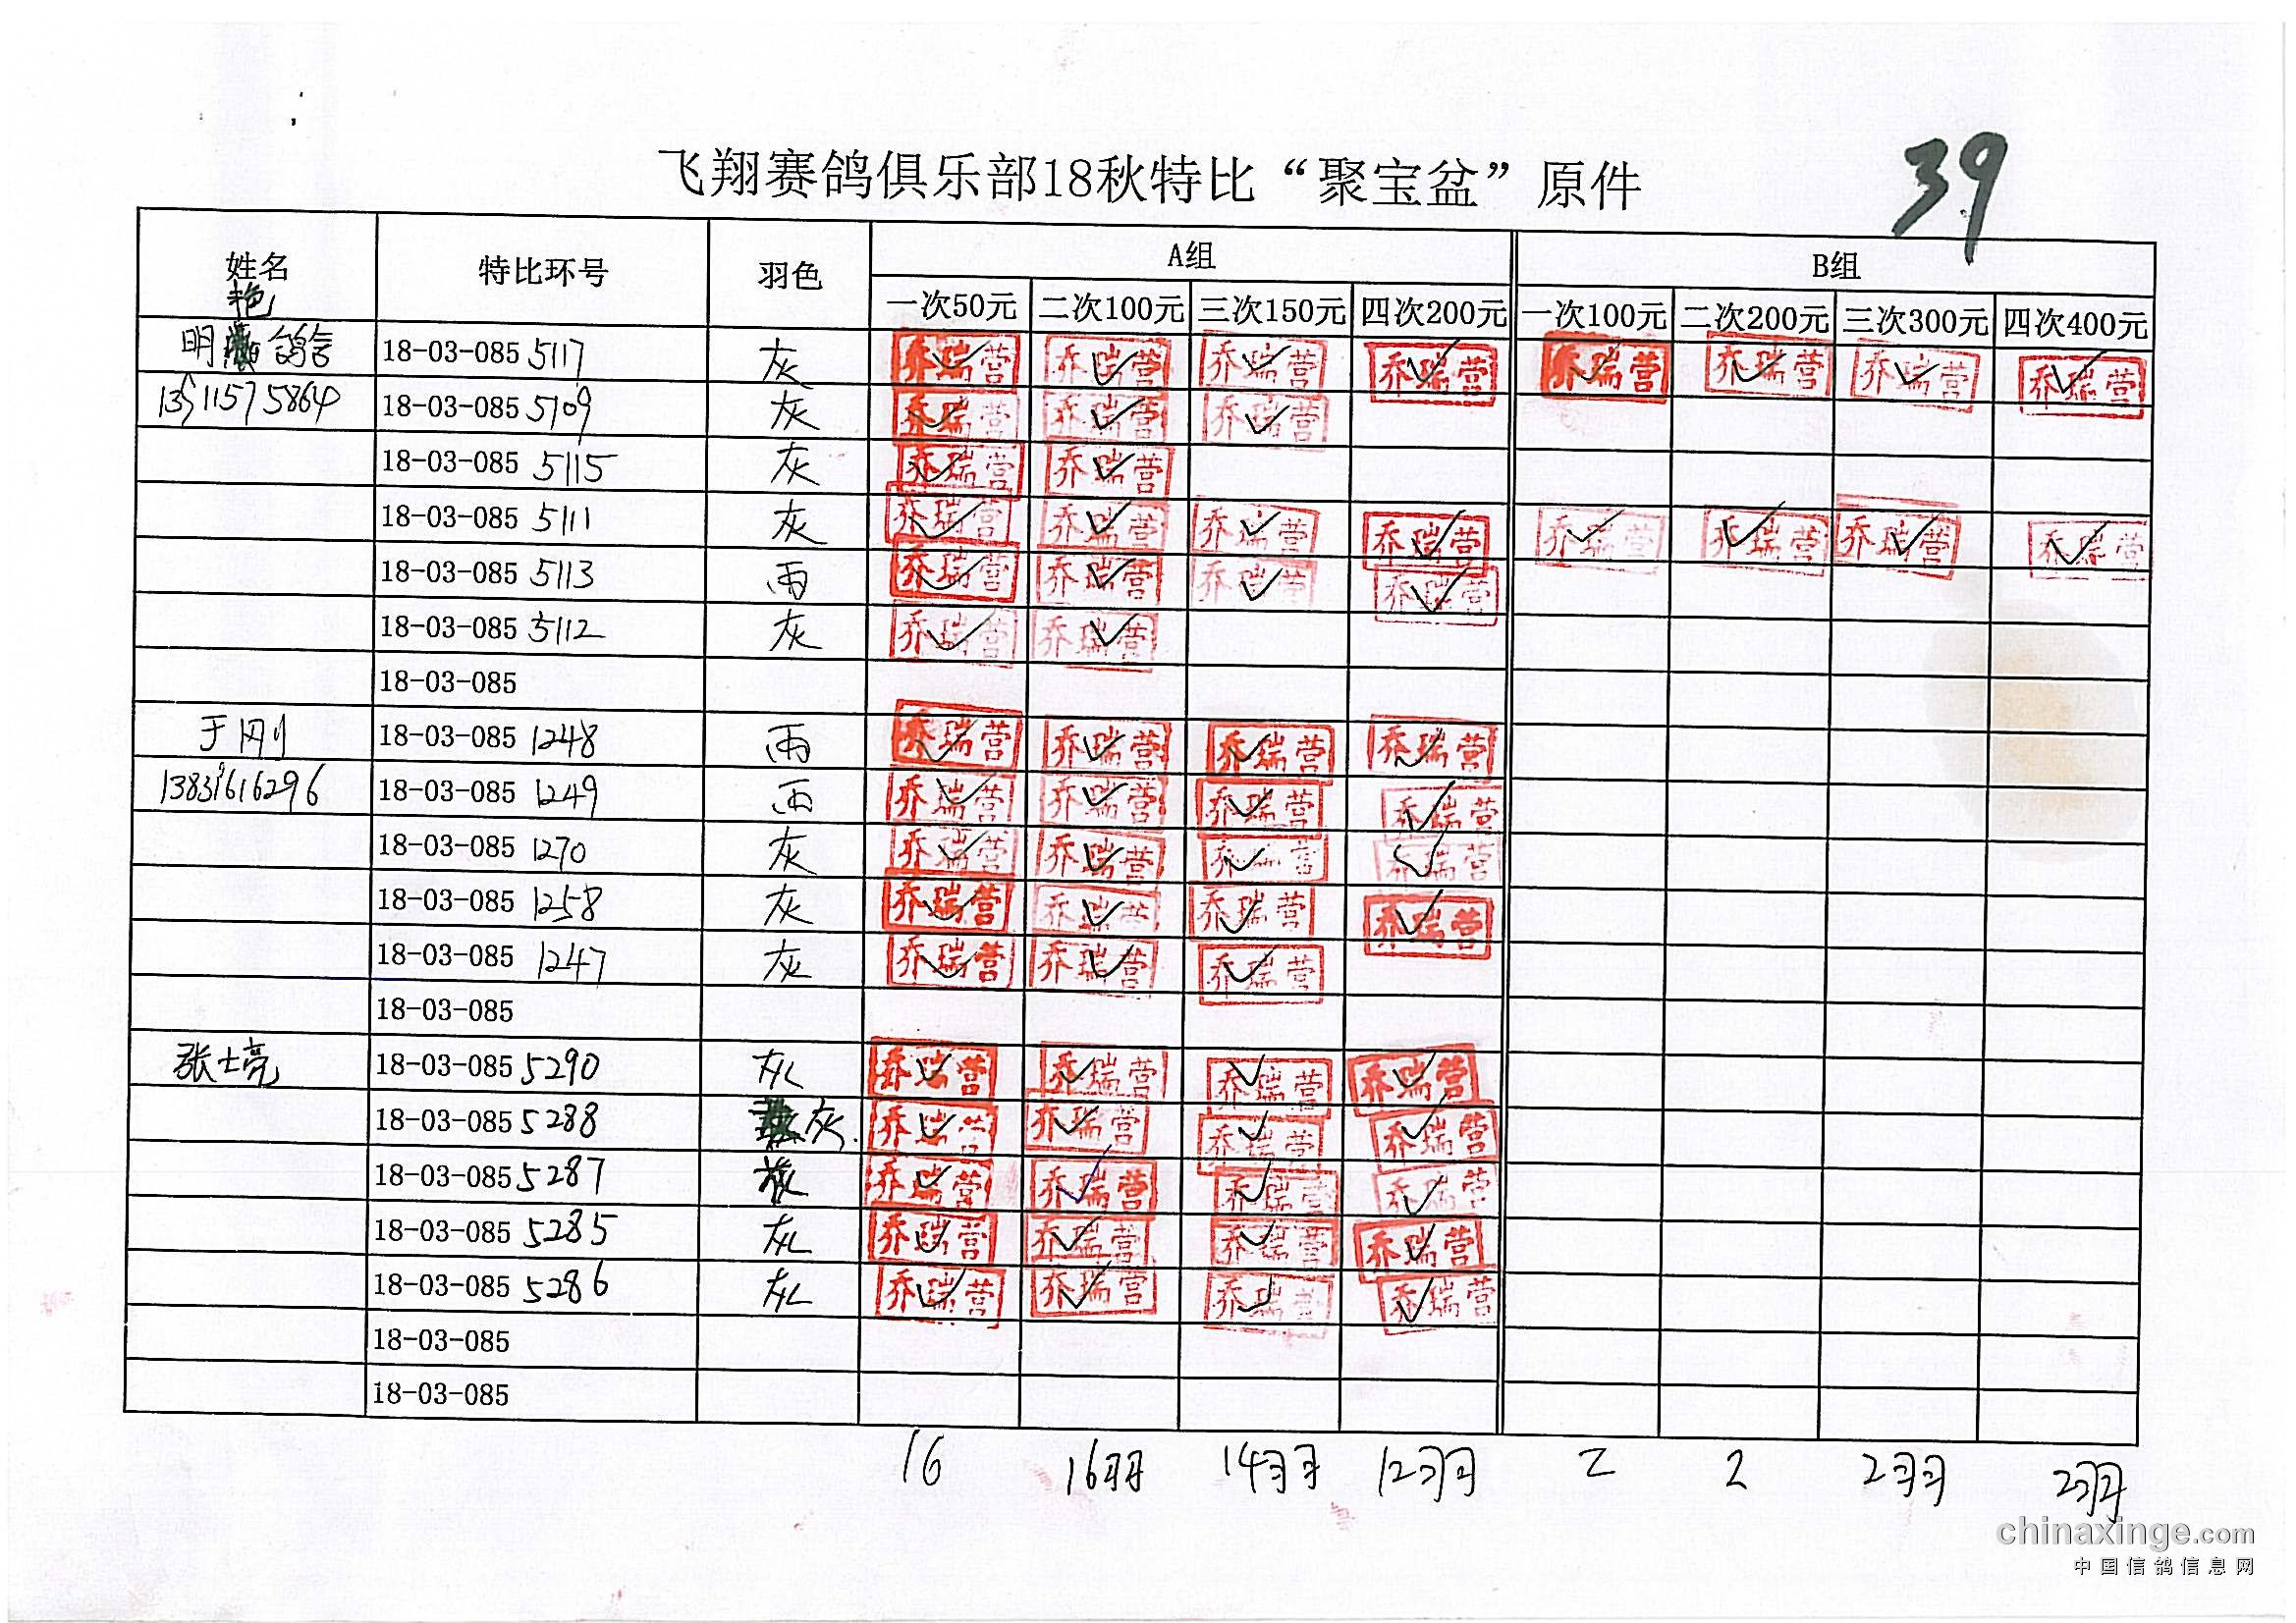 飞翔赛鸽俱乐部18秋特比“聚宝盆”原件
39
姓名 特比环号 羽色 A组 B组
一次50元 二次100元 三次150元 四次200元 一次100元 二次200元 三次300元 四次400元
艳
明 鸽舍 18-03-085 5117 灰 乔瑞营 ✓ 乔瑞营 ✓ 乔瑞营 ✓ 乔瑞营 ✓ 乔瑞营 ✓ 乔瑞营 ✓ 乔瑞营 ✓ 乔瑞营 ✓
18-03-085 5109 灰 乔瑞营 ✓ 乔瑞营 ✓ 乔瑞营 ✓
18-03-085 5115 灰 乔瑞营 ✓ 乔瑞营 ✓
18-03-085 5111 灰 乔瑞营 ✓ 乔瑞营 ✓ 乔瑞营 ✓ 乔瑞营 ✓ 乔瑞营 ✓ 乔瑞营 ✓ 乔瑞营 ✓ 乔瑞营 ✓
18-03-085 5113 雨 乔瑞营 ✓ 乔瑞营 ✓ 乔瑞营 ✓ 乔瑞营 ✓
18-03-085 5112 灰 乔瑞营 ✓ 乔瑞营 ✓
18-03-085
于刚 18-03-085 1248 雨 乔瑞营 ✓ 乔瑞营 ✓ 乔瑞营 ✓ 乔瑞营 ✓
13831616296 18-03-085 1249 雨 乔瑞营 ✓ 乔瑞营 ✓ 乔瑞营 ✓ 乔瑞营 ✓
18-03-085 1270 灰 乔瑞营 ✓ 乔瑞营 ✓ 乔瑞营 ✓ 乔瑞营 ✓
18-03-085 1258 灰 乔瑞营 ✓ 乔瑞营 ✓ 乔瑞营 ✓ 乔瑞营 ✓
18-03-085 1247 灰 乔瑞营 ✓ 乔瑞营 ✓ 乔瑞营 ✓
18-03-085
张士亮 18-03-085 5290 灰 乔瑞营 ✓ 乔瑞营 ✓ 乔瑞营 ✓ 乔瑞营 ✓
18-03-085 5288 灰 乔瑞营 ✓ 乔瑞营 ✓ 乔瑞营 ✓ 乔瑞营 ✓
18-03-085 5287 灰 乔瑞营 ✓ 乔瑞营 ✓ 乔瑞营 ✓ 乔瑞营 ✓
18-03-085 5285 灰 乔瑞营 ✓ 乔瑞营 ✓ 乔瑞营 ✓ 乔瑞营 ✓
18-03-085 5286 灰 乔瑞营 ✓ 乔瑞营 ✓ 乔瑞营 ✓ 乔瑞营 ✓
18-03-085
18-03-085
16 16羽 14羽 12羽 2 2 2羽 2羽
chinaxinge.com
中国信鸽信息网